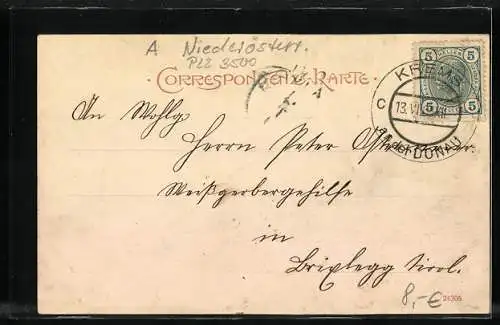 A Niederösterr.
PLZ 3500
CORRESPONDENZ-KARTE
5 5
5 5
KREMS
C 13.VI
an der DONAU
An Wohlg
Herrn Peter
Weißgerbergehilfe
in
Brixlegg Tirol.
8,-€